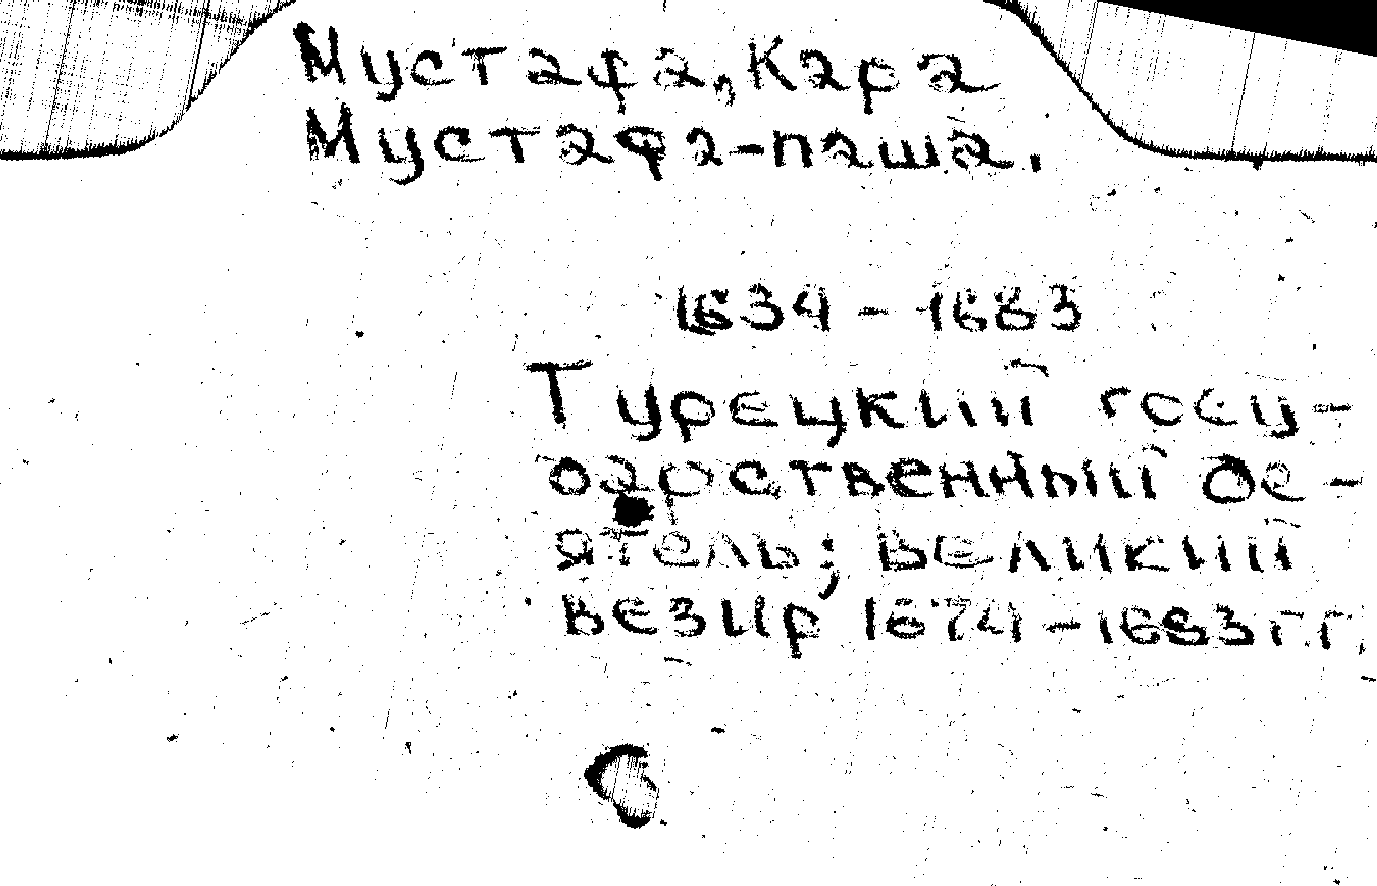 Мустафа, Кара
Мустафа-паша.
1634 - 1683
Турецкий госу-
дарственный де-
ятель; великий
везир 1674-1683 гг.